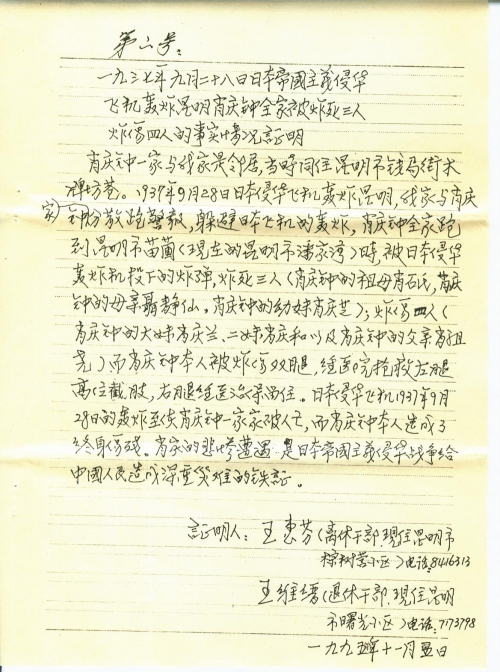 第六号：
一九三七年九月二十八日日本帝國主義侵华
飞机轰炸昆明肖庆钟全家被炸死三人
炸伤四人的事实情况証明
肖庆钟一家与我家是邻居，当时同住昆明市钱局街木
牌坊巷。1937年9月28日日本侵华飞机轰炸昆明，我家与肖庆
钟家纷散跑警报，躲避日本飞机的轰炸，肖庆钟全家跑
到昆明市苗圃（现在的昆明市潘家湾）時，被日本侵华
轰炸机投下的炸弹，炸死三人（肖庆钟的祖母肖石氏，肖庆
钟的母亲聂静仙，肖庆钟的幼妹肖庆芝）；炸伤四人（
肖庆钟的大妹肖庆兰、二妹肖庆和以及肖庆钟的父亲肖祖
尧）而肖庆钟本人被炸伤双腿，经医院抢救左腿
高位截肢，右腿经医治保留住。日本侵华飞机1937年9月
28日的轰炸至使肖庆钟一家家破人亡，而肖庆钟本人造成了
终身伤残。肖家的悲惨遭遇是日本帝國主義侵华战争给
中國人民造成深重災难的铁証。
証明人：王惠芬（离休干部.现住昆明市
棕树营小区）电话：8416313
王维缙（退休干部.现住昆明
市曙光小区）电话：7173798
一九九五年十一月五日